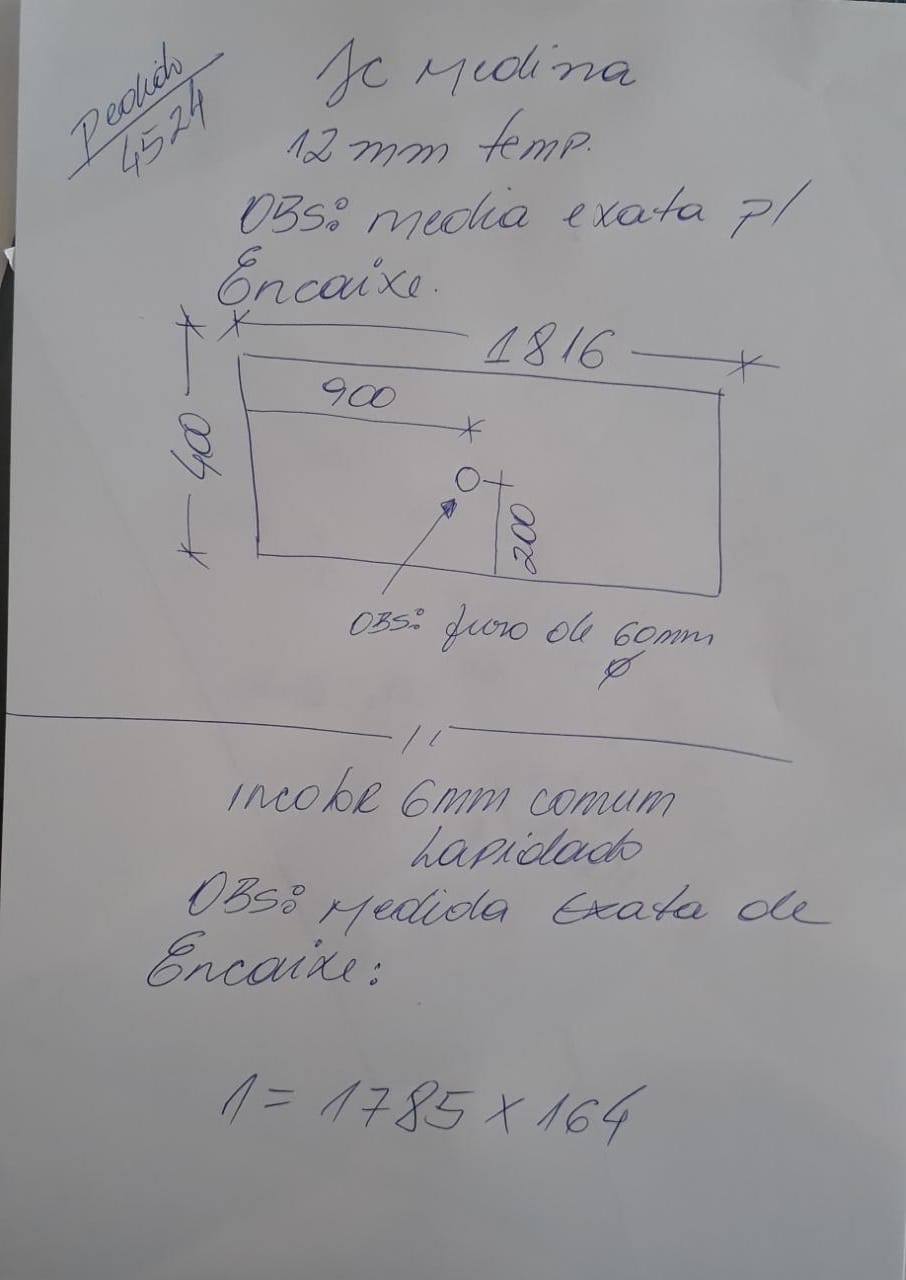 Pedido
4524
JC Medina
12 mm temp.
OBS: media exata p/
Encaixe.
1816
900
400
200
OBS: furo de 60mm
Ø
incolor 6mm comum
Lapidado
OBS: Medida Exata de
Encaixe:
1 = 1785 x 164